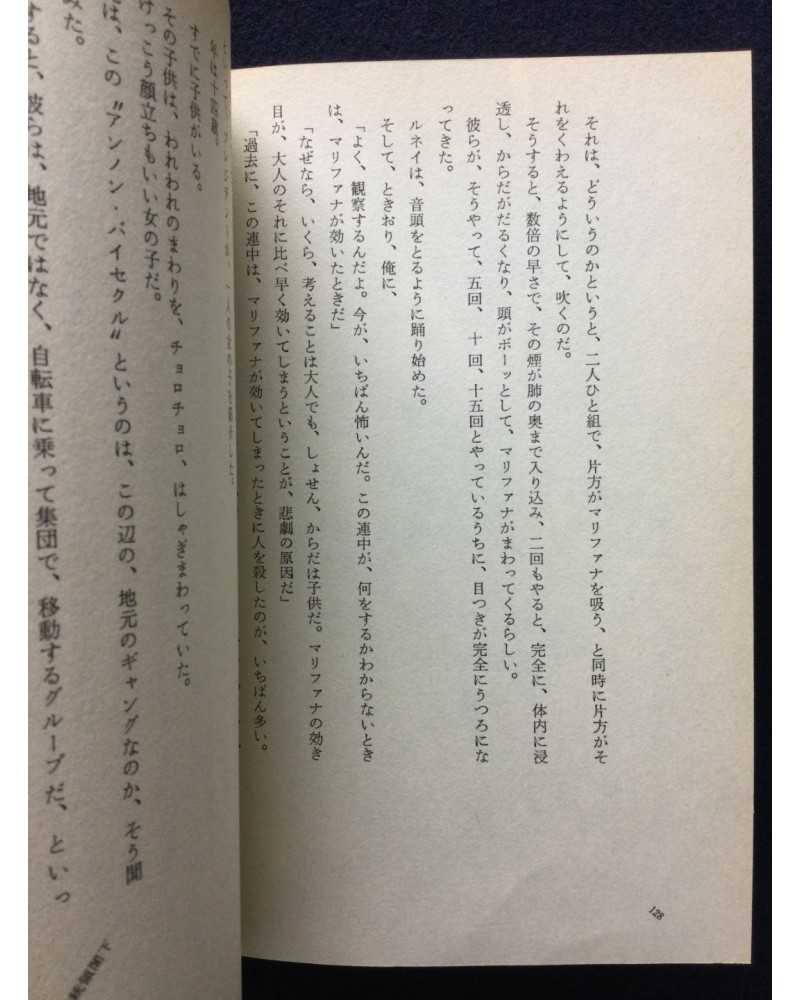 それは、どういうのかというと、二人ひと組で、片方がマリファナを吸う、と同時に片方がそ
れをくわえるようにして、吹くのだ。
そうすると、数倍の早さで、その煙が肺の奥まで入り込み、二回もやると、完全に、体内に浸
透し、からだがだるくなり、頭がボーッとして、マリファナがまわってくるらしい。
彼らが、そうやって、五回、十回、十五回とやっているうちに、目つきが完全にうつろにな
ってきた。
ルネイは、音頭をとるように踊り始めた。
そして、ときおり、俺に、
「よく、観察するんだよ。今が、いちばん怖いんだ。この連中が、何をするかわからないとき
は、マリファナが効いたときだ」
「なぜなら、いくら、考えることは大人でも、しょせん、からだは子供だ。マリファナの効き
目が、大人のそれに比べ早く効いてしまうということが、悲劇の原因だ」
「過去に、この連中は、マリファナが効いてしまったときに人を殺したのが、いちばん多い。
128
年は十四歳。
すでに子供がいる。
その子供は、われわれのまわりを、チョロチョロ、はしゃぎまわっていた。
けっこう顔立ちもいい女の子だ。
は、この〝アンノン・バイセクル〟というのは、この辺の、地元のギャングなのか、そう聞
みた。
すると、彼らは、地元ではなく、自転車に乗って集団で、移動するグループだ、といっ